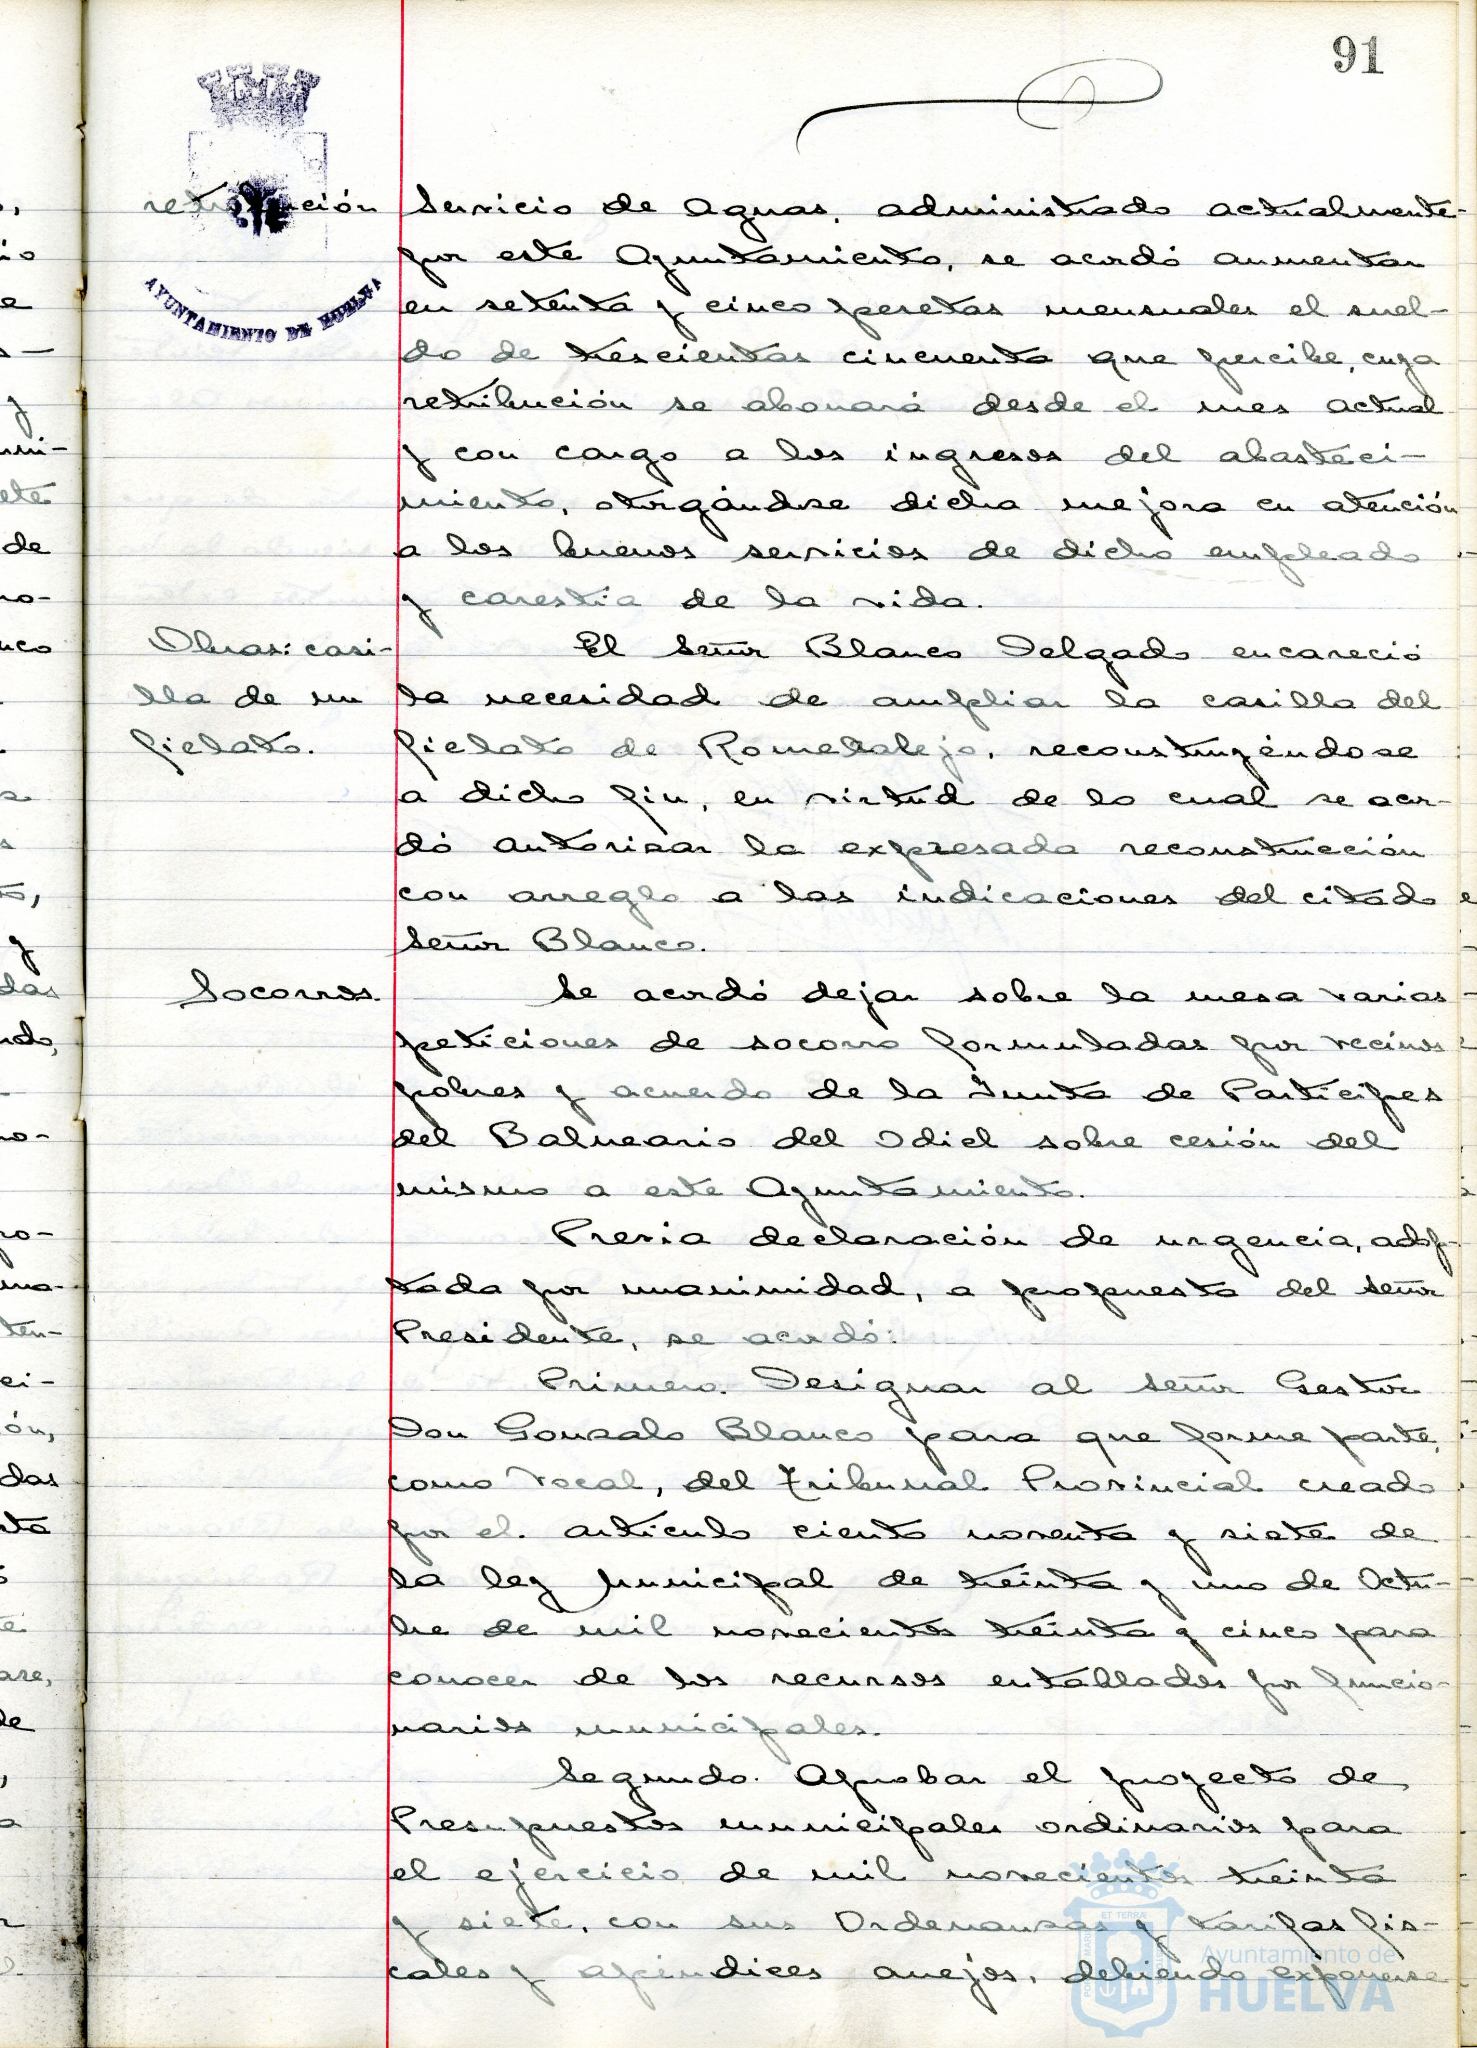 91
retribución
Servicio de Aguas, administrado actualmente
por este Ayuntamiento, se acordó aumentar
AYUNTAMIENTO DE HUELVA
en setenta y cinco pesetas mensuales el suel-
do de trescientas cincuenta que percibe, cuya
retribución se abonará desde el mes actual
y con cargo a los ingresos del abasteci-
miento, otorgándose dicha mejora en atención
a los buenos servicios de dicho empleado
y carestía de la vida.
Obras: casi-
El Señor Blanco Delgado encareció
lla de un
la necesidad de ampliar la casilla del
fielato.
fielato de Rometalejo, reconstruyéndose
a dicho fin, en virtud de lo cual se acor-
dó autorizar la expresada reconstrucción
con arreglo a las indicaciones del citado
Señor Blanco.
Socorros.
Se acordó dejar sobre la mesa varias
peticiones de socorro formuladas por vecinos
pobres y acuerdo de la Junta de Partícipes
del Balneario del Odiel sobre cesión del
mismo a este Ayuntamiento.
Previa declaración de urgencia, adop-
tada por unanimidad, a propuesta del Señor
Presidente, se acordó:
Primero. Designar al Señor Gestor
Don Gonzalo Blanco para que forme parte,
como Vocal, del Tribunal Provincial creado
por el artículo ciento noventa y siete de
la ley Municipal de treinta y uno de Octu-
bre de mil novecientos treinta y cinco para
conocer de los recursos entablados por funcio-
narios municipales.
Segundo. Aprobar el proyecto de
Presupuestos municipales ordinarios para
el ejercicio de mil novecientos treinta
y siete, con sus Ordenanzas y tarifas fis-
cales y apéndices anejos, debiendo exponerse
Ayuntamiento de
HUELVA